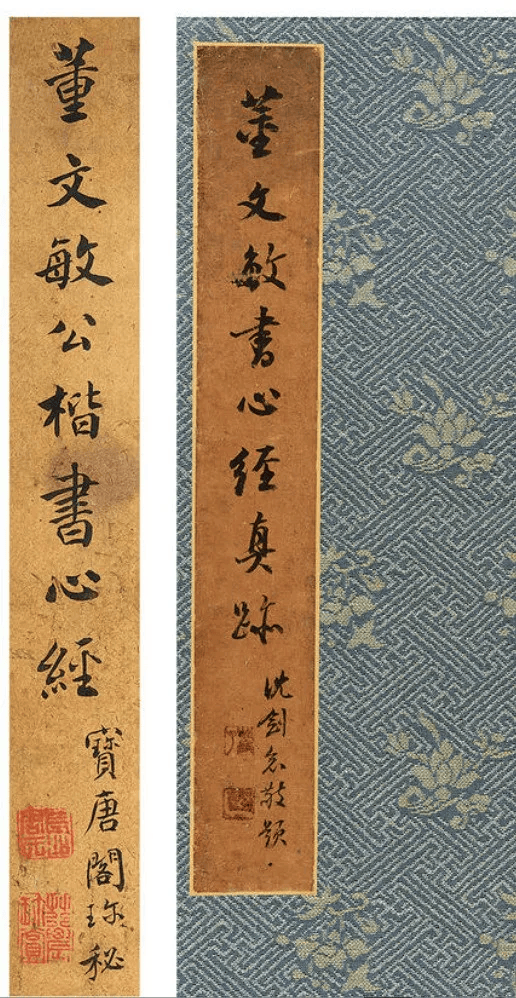 董文敏公楷書心經
寶唐閣珎秘
董文敏書心經真跡
沈剑 敬題